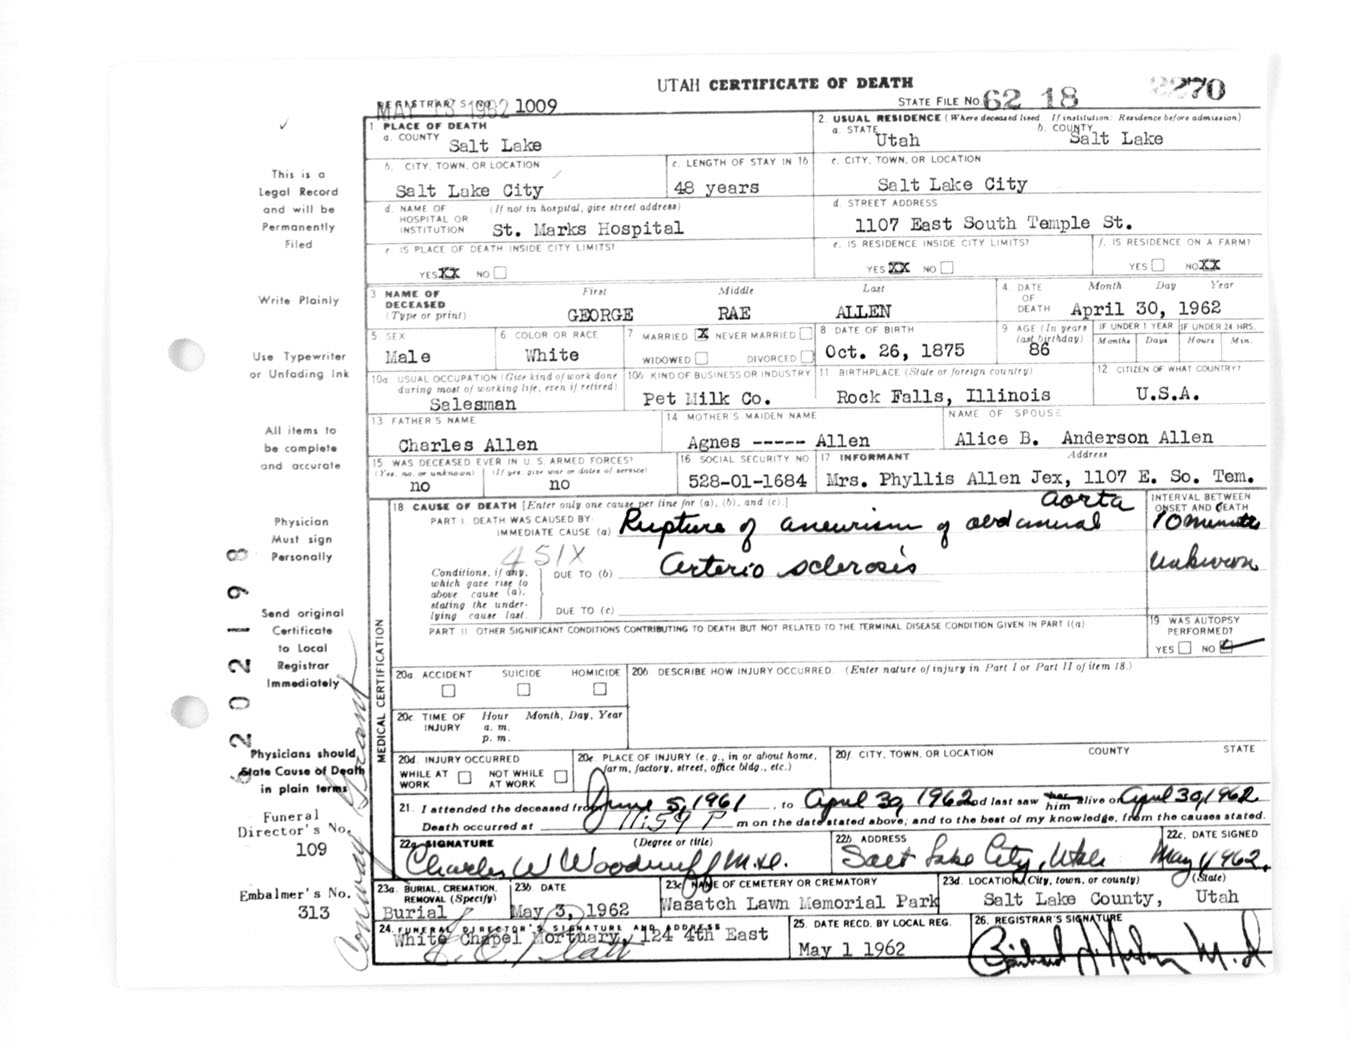 UTAH CERTIFICATE OF DEATH
REGISTRAR'S NO. 1009
MAY 13 1962
STATE FILE NO. 62 18 2270
This is a
Legal Record
and will be
Permanently
Filed
Write Plainly
Use Typewriter
or Unfading Ink
All items to
be complete
and accurate
Physician
Must sign
Personally
Send original
Certificate
to Local
Registrar
Immediately
Physicians should
State Cause of Death
in plain terms
Funeral
Director's No.
109
Embalmer's No.
313
1 PLACE OF DEATH
a. COUNTY Salt Lake
2. USUAL RESIDENCE (Where deceased lived. If institution: Residence before admission)
a. STATE Utah b. COUNTY Salt Lake
b. CITY, TOWN, OR LOCATION Salt Lake City
c. LENGTH OF STAY IN 1b 48 years
c. CITY, TOWN, OR LOCATION Salt Lake City
d. NAME OF HOSPITAL OR INSTITUTION (If not in hospital, give street address) St. Marks Hospital
d. STREET ADDRESS 1107 East South Temple St.
e. IS PLACE OF DEATH INSIDE CITY LIMITS? YES XX NO
e. IS RESIDENCE INSIDE CITY LIMITS? YES XX NO
f. IS RESIDENCE ON A FARM? YES NO XX
3 NAME OF DECEASED (Type or print) First Middle Last
GEORGE RAE ALLEN
4. DATE OF DEATH Month Day Year
April 30, 1962
5 SEX Male
6 COLOR OR RACE White
7 MARRIED X NEVER MARRIED WIDOWED DIVORCED
8 DATE OF BIRTH Oct. 26, 1875
9 AGE (In years last birthday) 86
IF UNDER 1 YEAR Months Days
IF UNDER 24 HRS. Hours Min.
10a USUAL OCCUPATION (Give kind of work done during most of working life, even if retired) Salesman
10b KIND OF BUSINESS OR INDUSTRY Pet Milk Co.
11 BIRTHPLACE (State or foreign country) Rock Falls, Illinois
12 CITIZEN OF WHAT COUNTRY? U.S.A.
13. FATHER'S NAME Charles Allen
14 MOTHER'S MAIDEN NAME Agnes ----- Allen
NAME OF SPOUSE Alice B. Anderson Allen
15 WAS DECEASED EVER IN U.S. ARMED FORCES? (Yes, no, or unknown) no (If yes, give war or dates of service) no
16 SOCIAL SECURITY NO 528-01-1684
17 INFORMANT Address Mrs. Phyllis Allen Jex, 1107 E. So. Tem.
MEDICAL CERTIFICATION
18 CAUSE OF DEATH [Enter only one cause per line for (a), (b), and (c).]
INTERVAL BETWEEN ONSET AND DEATH
PART I. DEATH WAS CAUSED BY:
IMMEDIATE CAUSE (a) Rupture of aneurism of abdominal aorta 10 minutes
451X
Conditions, if any, which gave rise to above cause (a), stating the underlying cause last.
DUE TO (b) Arterio sclerosis Unknown
DUE TO (c)
PART II OTHER SIGNIFICANT CONDITIONS CONTRIBUTING TO DEATH BUT NOT RELATED TO THE TERMINAL DISEASE CONDITION GIVEN IN PART I(a)
19 WAS AUTOPSY PERFORMED? YES NO
20a. ACCIDENT SUICIDE HOMICIDE
20b. DESCRIBE HOW INJURY OCCURRED. (Enter nature of injury in Part I or Part II of item 18.)
20c. TIME OF INJURY Hour a. m. p. m. Month, Day, Year
20d. INJURY OCCURRED WHILE AT WORK NOT WHILE AT WORK
20e. PLACE OF INJURY (e. g., in or about home, farm, factory, street, office bldg., etc.)
20f. CITY, TOWN, OR LOCATION COUNTY STATE
21. I attended the deceased from June 5, 1961, to April 30, 1962 and last saw her him alive on April 30, 1962
Death occurred at 11:59 P m on the date stated above; and to the best of my knowledge, from the causes stated.
22a. SIGNATURE (Degree or title) Charles W Woodruff M.D.
22b. ADDRESS Salt Lake City, Utah
22c. DATE SIGNED May 1, 1962.
23a. BURIAL, CREMATION, REMOVAL (Specify) Burial
23b. DATE May 3, 1962
23c. NAME OF CEMETERY OR CREMATORY Wasatch Lawn Memorial Park
23d. LOCATION (City, town, or county) (State) Salt Lake County, Utah
24. FUNERAL DIRECTOR'S SIGNATURE AND ADDRESS
White Chapel Mortuary, 124 4th East
25. DATE RECD. BY LOCAL REG. May 1 1962
26. REGISTRAR'S SIGNATURE
M.D.